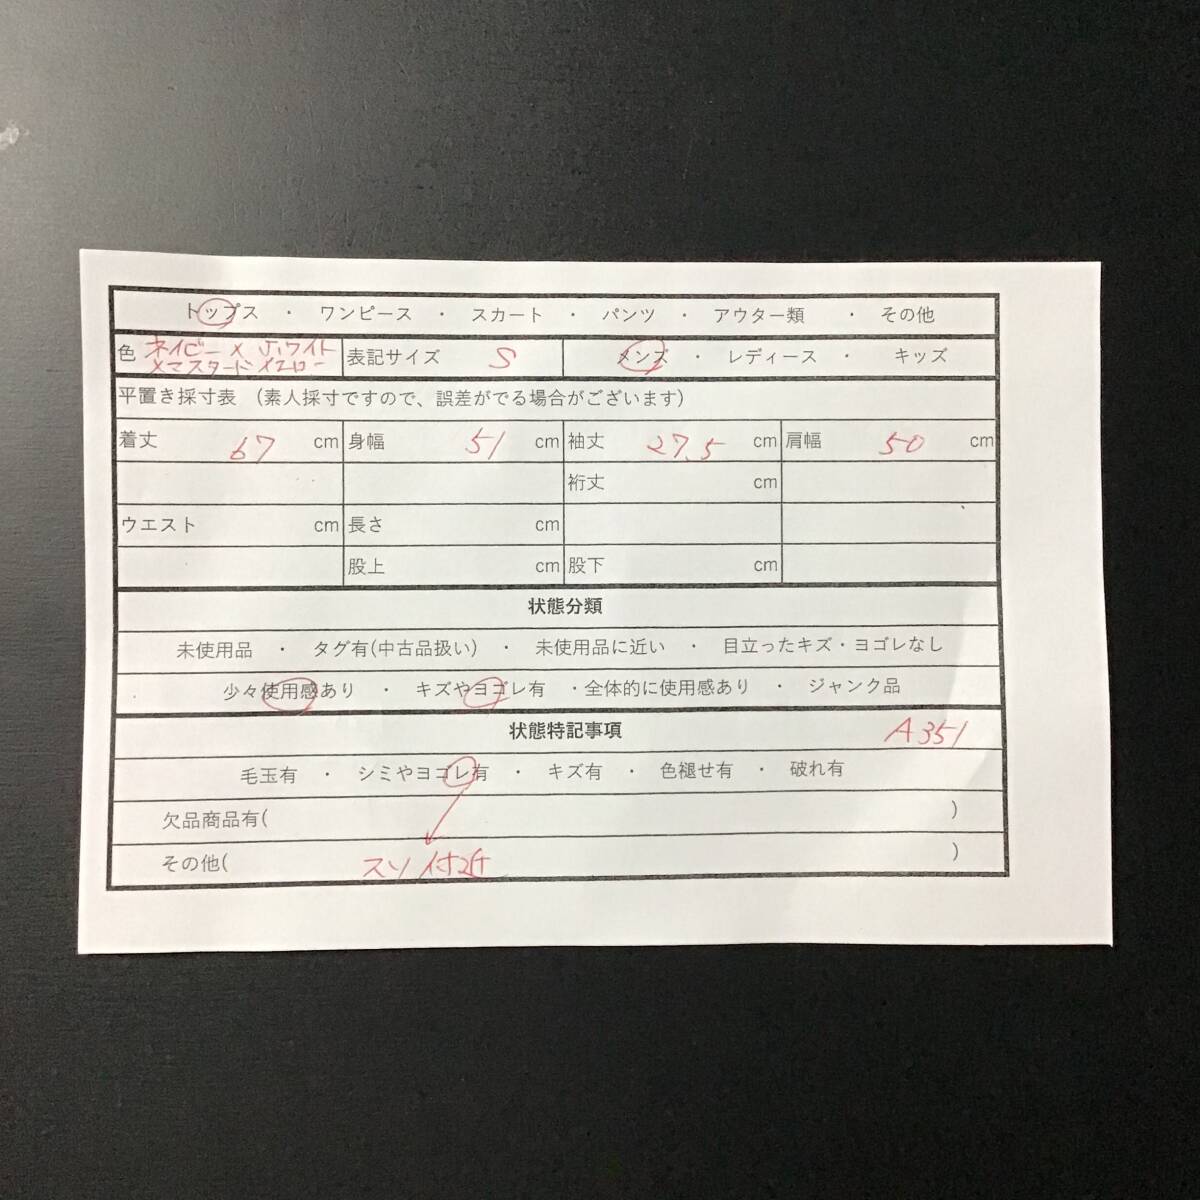 トップス ・ ワンピース ・ スカート ・ パンツ ・ アウター類 ・ その他
色 ネイビー × ホワイト 表記サイズ S メンズ ・ レディース ・ キッズ
×マスタードイエロー
平置き採寸表 (素人採寸ですので、誤差がでる場合がございます)
着丈 67 cm 身幅 51 cm 袖丈 27.5 cm 肩幅 50 cm
裄丈 cm
ウエスト cm 長さ cm
股上 cm 股下 cm
状態分類
未使用品 ・ タグ有(中古品扱い) ・ 未使用品に近い ・ 目立ったキズ・ヨゴレなし
少々使用感あり ・ キズやヨゴレ有 ・全体的に使用感あり ・ ジャンク品
状態特記事項 A351
毛玉有 ・ シミやヨゴレ有 ・ キズ有 ・ 色褪せ有 ・ 破れ有
欠品商品有( )
その他( スソ付近 )